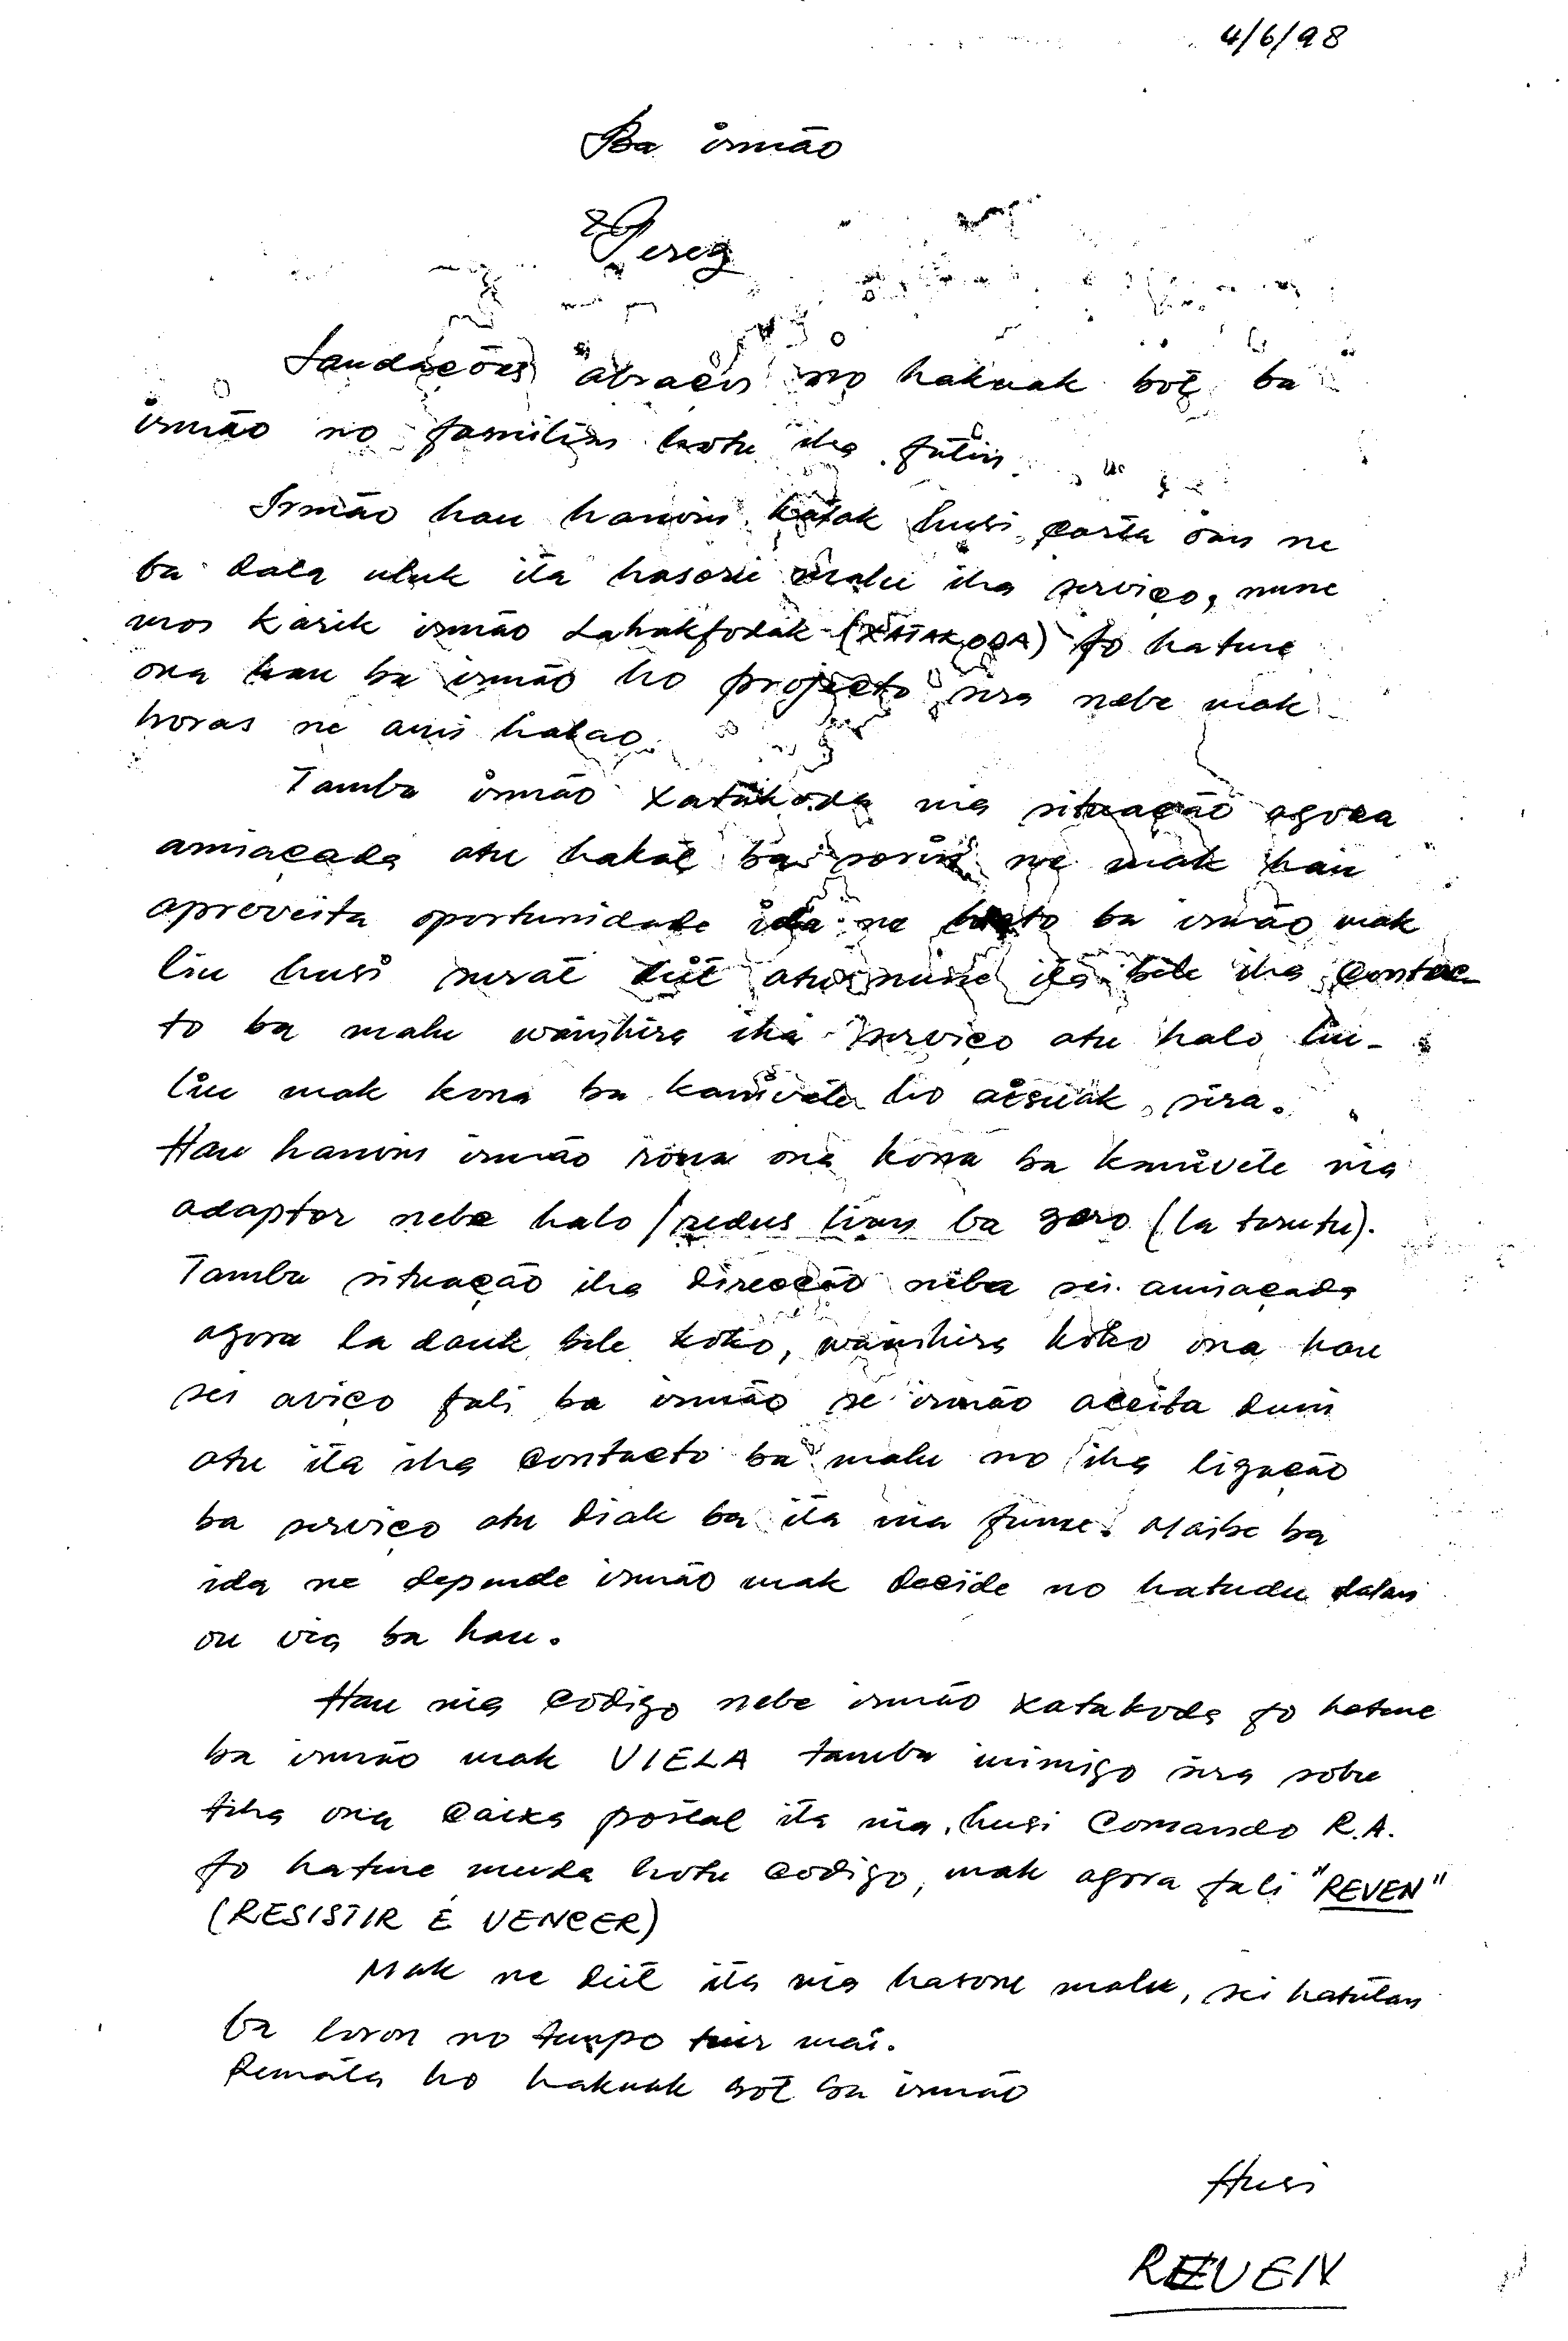 4/6/98
Ba irmão
Pereg
Saudações abraços no hakuak bot ba
irmão no familias hotu iha fatin.
Irmão hau hanoin katak husi carta oan ne
ba dala uluk ita hasoru malu iha serviço, nune
mos karik irmão Lahakfodak (XATAKODA) fo hatene
ona hau ba irmão ho projecto sira nebe mak
horas ne ami halao.
Tamba irmão Xatakoda nia situação agora
amiaçada atu hakat ba sorin ne mak hau
aproveita oportunidade ida ne ba irmão mak
liu husi surat diit atu nune ita bele iha contac-
to ba malu wainhira iha serviço atu halo liu-
liu mak kona ba kanivete ho aisuak sira.
Hau hanoin irmão rona ona kona ba kanivete nia
adaptor nebe halo / redus lian ba zero (la tarutu).
Tamba situação iha direcção neba sei amiaçada
agora la dauk bele koko, wainhira koko ona hau
sei aviço fali ba irmão se irmão aceita duni
atu ita iha contacto ba malu no iha ligação
ba serviço atu diak ba ita nia funu. Maibe ba
ida ne depende irmão mak decide no hatudu dalan
ou via ba hau.
Hau nia codigo nebe irmão Xatakoda fo hatene
ba irmão mak VIELA tamba inimigo sira sobre
tiha ona caixa postal ita nia, husi Comando R.A.
fo hatene muda hotu codigo, mak agora fali "REVEN"
(RESISTIR É VENCER)
Mak ne diit ita nia hasoru malu, sei hatutan
ba loron no tempo tuir mai.
Remata ho hakuak bot ba irmão
Husi
REVEN